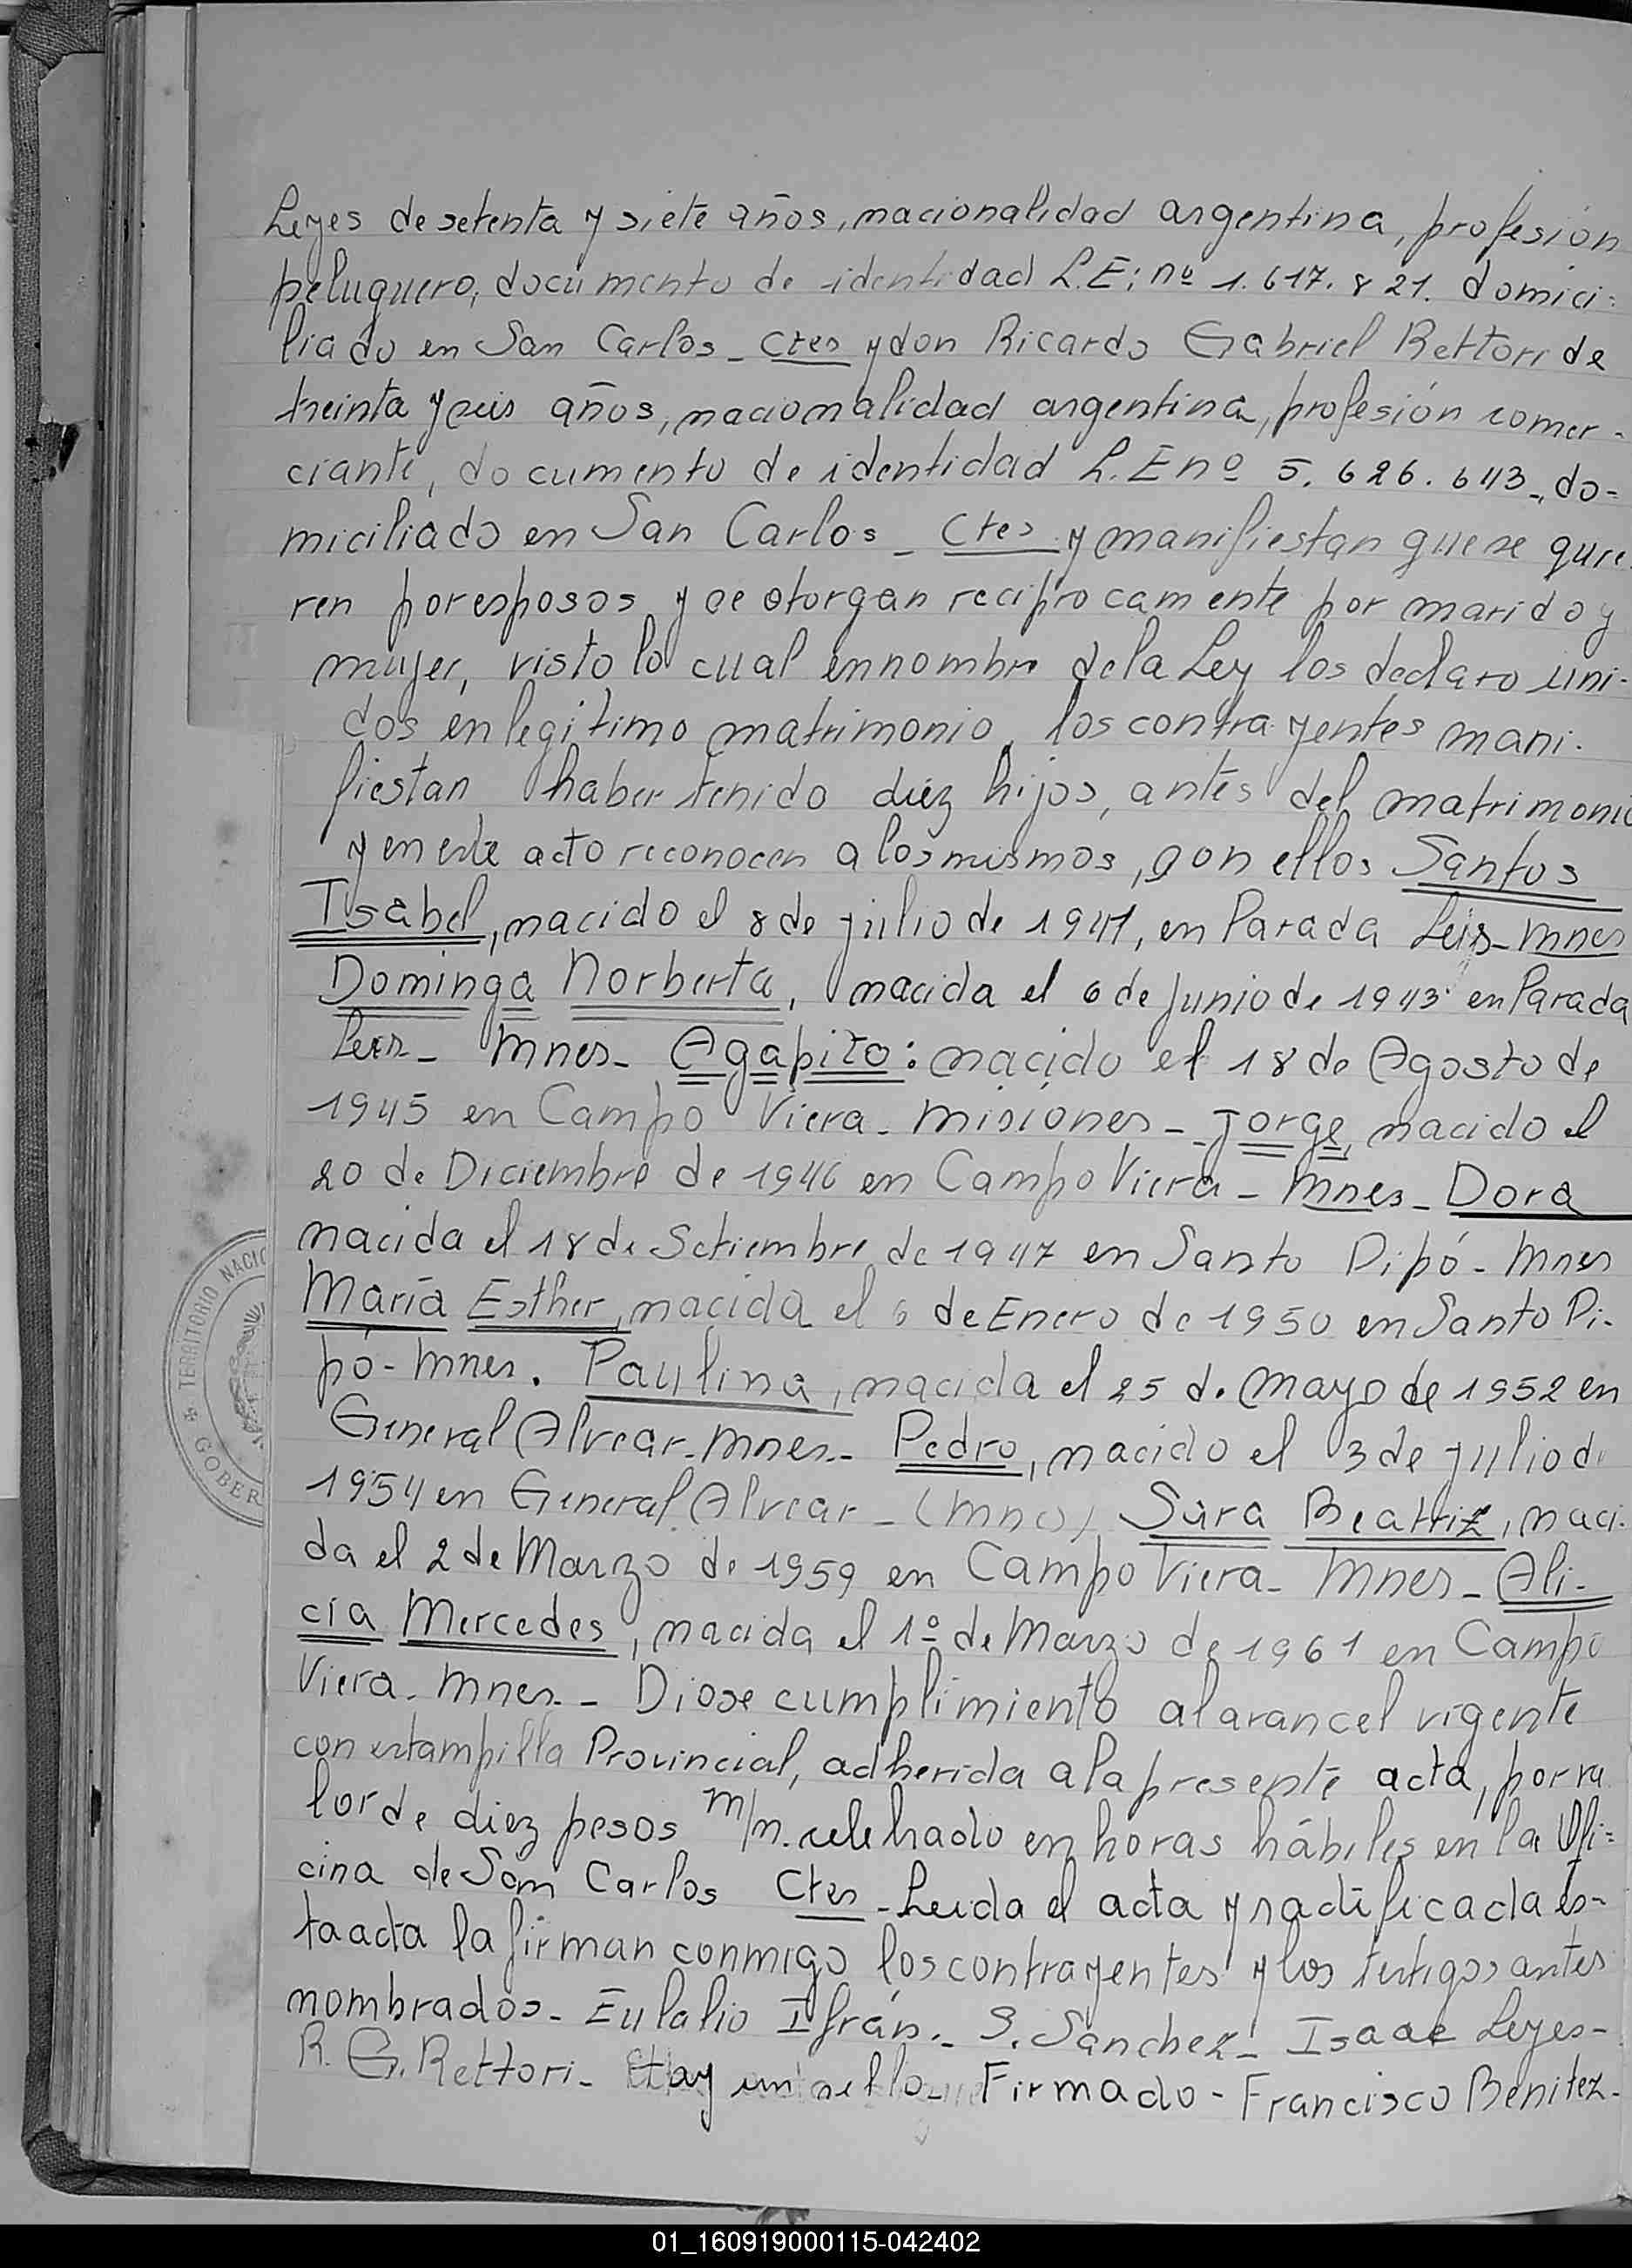 Leyes de setenta y siete años, nacionalidad argentina, profesión
peluquero, documento de identidad L.E; nº 1.617.821. domici=
liado en San Carlos - Ctes y don Ricardo Gabriel Rettori de
treinta y seis años, nacionalidad argentina, profesión comer-
ciante, documento de identidad L.E nº 5.626.643., do=
miciliado en San Carlos - Ctes y manifiestan que se quie
ren por esposos y se otorgan reciprocamente por marido y
mujer, visto lo cual en nombre de la Ley los declaro uni-
dos en legitimo matrimonio, los contrayentes mani-
fiestan haber tenido diez hijos, antes del matrimonio
y en este acto reconocen a los mismos, son ellos Santos
Isabel, nacido el 8 de julio de 1941, en Parada Leis - Mnes
Dominga Norberta, nacida el 6 de Junio de 1943 en Parada
Leis - Mnes - Agapito: nacido el 18 de Agosto de
1945 en Campo Viera - Misiones - Jorge, nacido el
20 de Diciembre de 1946 en Campo Viera - Mnes - Dora
nacida el 18 de Setiembre de 1947 en Santo Pipó - Mnes
María Esther, nacida el 6 de Enero de 1950 en Santo Pi-
pó - Mnes. Paulina, nacida el 25 de Mayo de 1952 en
General Alvear - Mnes - Pedro, nacido el 3 de julio de
1954 en General Alvear - (Mnes) Sara Beatriz, naci-
da el 2 de Marzo de 1959 en Campo Viera - Mnes - Ali-
cia Mercedes, nacida el 1º de Marzo de 1961 en Campo
Viera - Mnes - Diose cumplimiento al arancel vigente
con estampilla Provincial, adherida a la presente acta, por va
lor de diez pesos m/n. celebrado en horas hábiles en la Ofi=
cina de San Carlos Ctes - Leida el acta y radificada es-
ta acta la firman conmigo los contrayentes y los testigos antes
nombrados - Eulalio Ifrán - S. Sanchez - Isaac Leyes -
R. G. Rettori - Hay un sello - Firmado - Francisco Benitez -
TERRITORIO NACIO
GOBER
01_160919000115-042402